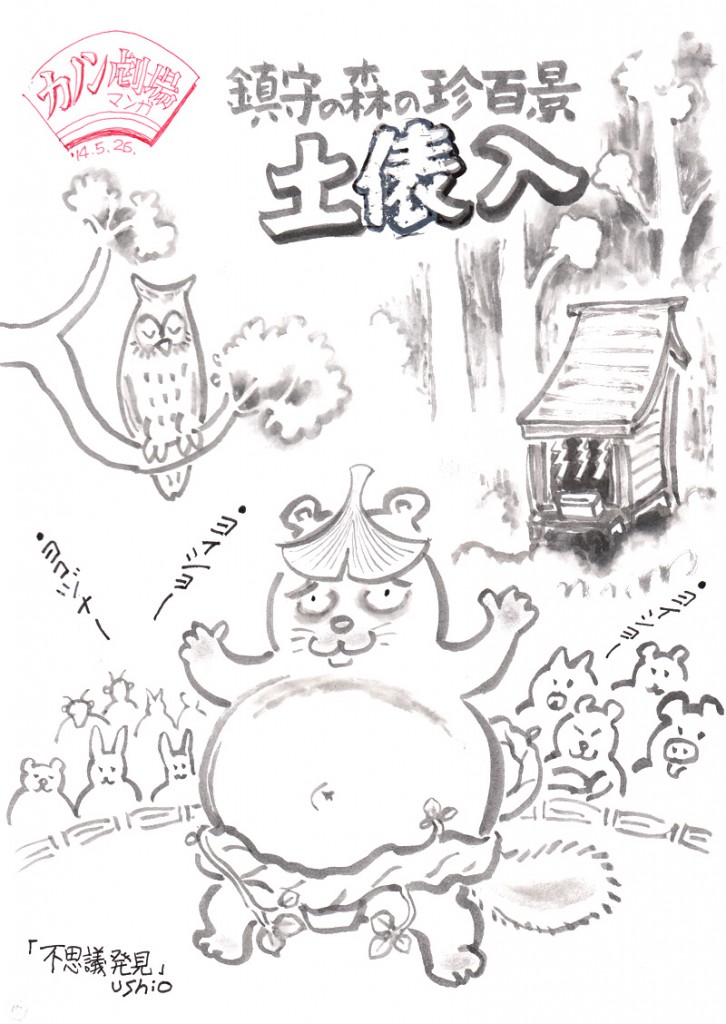 カノン劇場
マンガ
'14.5.26.
鎮守の森の珍百景
土俵入
・ヨイショー
・ヨコヅナー
・ヨイショー
「不思議発見」
ushio